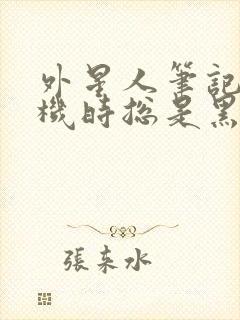 外星人筆記
機時總是黑
張未水